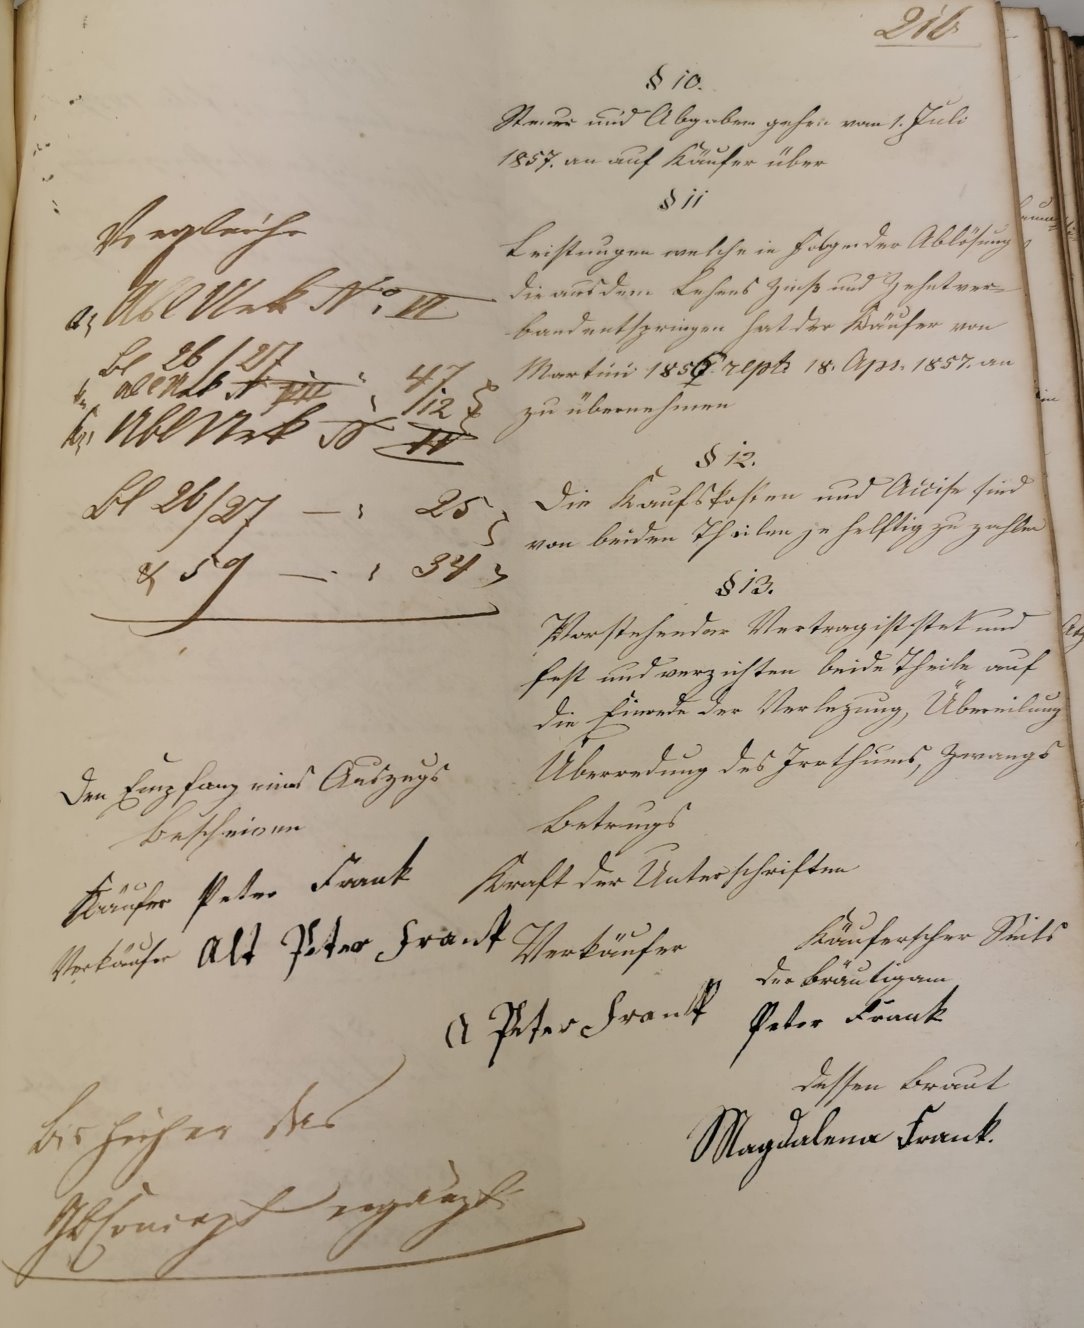 216
§ 10.
Steuer und Abgaben gehen vom 1. Juli
1857. an auf Käufer über
§ 11
Leistungen welche in Folge der Ablösung
die aus dem Lehens Zins und Zehntver-
band entspringen hat der Käufer von
Martini 1856 resptx 18. Apr. 1857. an
zu übernehmen
§ 12.
Die Kaufskosten und Accise sind
von beiden Theilen je helftig zu zahlen
§ 13.
Vorstehender Vertrag ist stet und
fest und verzichten beide Theile auf
die Einrede der Verlezung, Übereilung
Überredung des Irrthums, Zwangs
Betrugs
Kraft der Unterschriften
Verkäufer
A Peter Frank
Käuferscher Seits
der Bräutigam
Peter Frank
dessen Braut
Magdalena Frank.
Vergleiche
a, Abl Urk No. VI
Bl 26/27 " 47
Abl Urk N VIII " 112
Abl Urk N VI
Bl 26/27 — " 25
& 59 — " 34
Den Empfang eines Auszugs
bescheinen
Käufer Peter Frank
Verkäufer Alt Peter Frank
Bis hieher das
Concept ergänzt